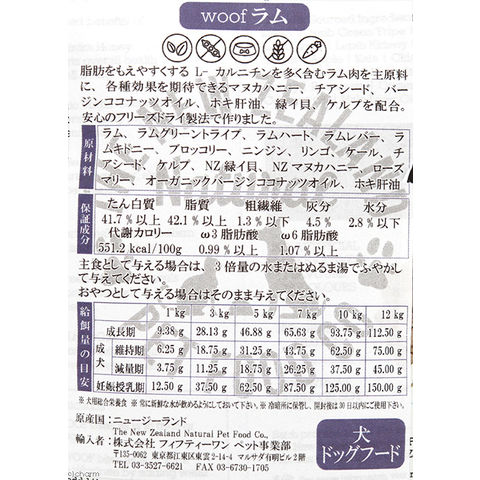 woof ラム
脂肪をもえやすくする L- カルニチンを多く含むラム肉を主原料
に、各種効果を期待できるマヌカハニー、チアシード、バー
ジンココナッツオイル、ホキ肝油、緑イ貝、ケルプを配合。
安心のフリーズドライ製法で作りました。
原材料
ラム、ラムグリーントライプ、ラムハート、ラムレバー、ラ
ムキドニー、ブロッコリー、ニンジン、リンゴ、ケール、チ
アシード、ケルプ、NZ 緑イ貝、NZ マヌカハニー、ローズ
マリー、オーガニックバージンココナッツオイル、ホキ肝油
保証成分
たん白質 脂質 粗繊維 灰分 水分
41.7 % 以上 42.1 % 以上 1.3 % 以下 4.5 % 2.8 % 以下
代謝カロリー ω3 脂肪酸 ω6 脂肪酸
551.2 kcal/100g 0.99 % 以上 1.07 % 以上
主食として与える場合は、3 倍量の水またはぬるま湯でふやかし
て与えてください。
おやつとして与える場合はそのまま与えてください。
給餌量の目安
1 kg 3 kg 5 kg 7 kg 10 kg 12 kg
成長期 9.38 g 28.13 g 46.88 g 65.63 g 93.75 g 112.50 g
成犬
維持期 6.25 g 18.75 g 31.25 g 43.75 g 62.50 g 75.00 g
減量期 3.75 g 11.25 g 18.75 g 26.25 g 37.50 g 45.00 g
妊娠授乳期 12.50 g 37.50 g 62.50 g 87.50 g 125.00 g 150.00 g
※ 犬用総合栄養食 ※ 常に新鮮な水が飲めるようにしておいて下さい。 ※ 冷暗所に保管し、開封後は 30 日以内にご使用ください。
原産国：ニュージーランド
The New Zealand Natural Pet Food Co.
輸入者：株式会社 フィフティーワン ペット事業部
〒135-0062 東京都江東区東雲 2-14-1 マルサダ有明ビル 2階
TEL 03-3527-6621 FAX 03-6730-1705
犬
ドッグフード
charm